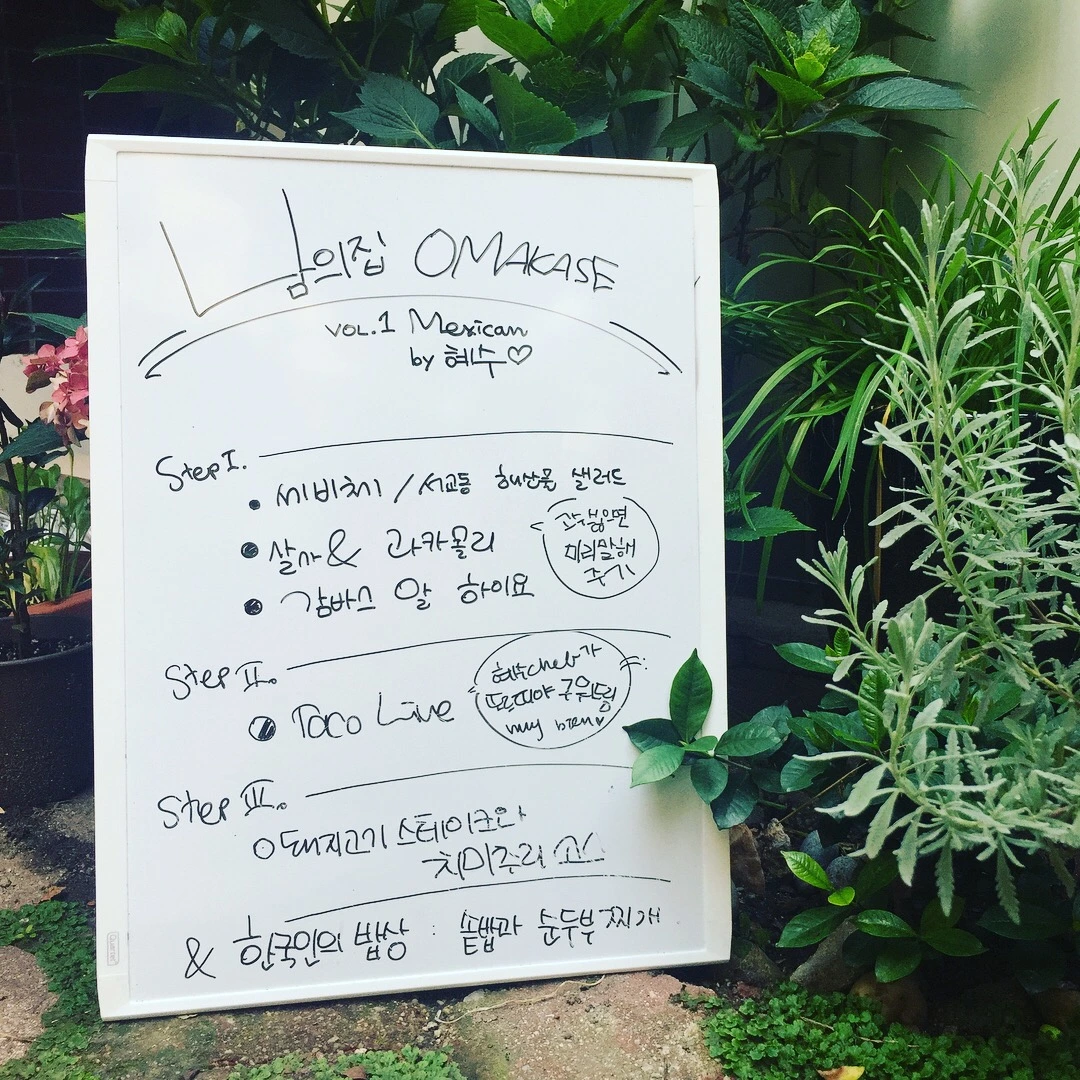 남의집 OMAKASE
VOL.1 Mexican
by 혜수♡
Step I.
• 쎄비체 / 서교동 해산물 샐러드
• 살사 & 과카몰리
• 감바스 알 하이요
고수싫으면
미리말해
주기
Step II.
Taco Live
혜수chef가
또르띠야 구워드림
Step III.
돼지고기 스테이크와
치미추리 소스
& 한국인의 밥상 : 솥밥과 순두부찌개